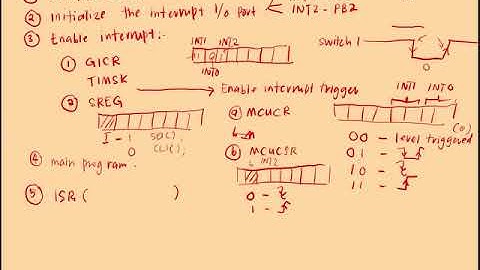 ② Initialize the interrupt I/o port
INT2 - PB2
③ Enable interrupt:
INT1 INT2
INT0
switch 1
0
① GICR
TIMSK
Enable interrupt trigger
② SREG
I - 1 SEI();
0 CLI();
ⓐ MCUCR
INT1 INT0
(0)
00 - level triggered
01 -
10 -
11 -
ⓑ MCUCSR
6 INT2
0 -
1 -
④ main program.
⑤ ISR ( )